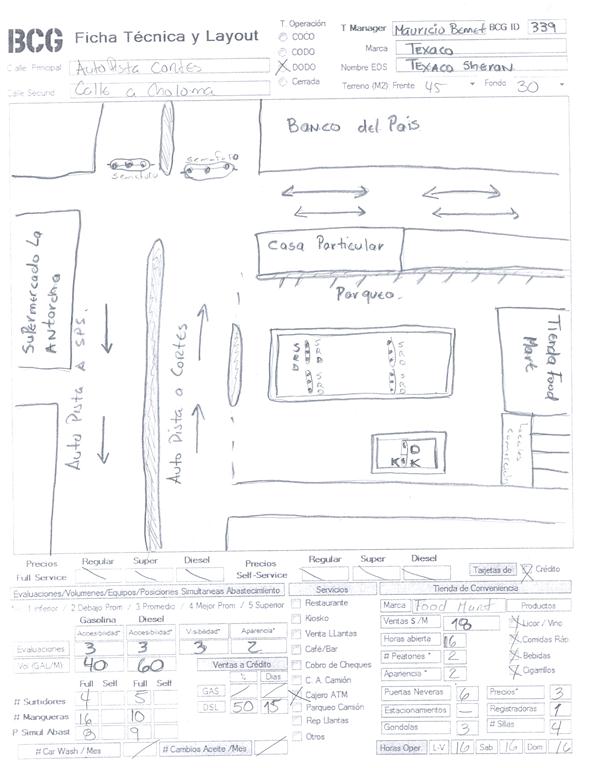 BCG Ficha Técnica y Layout
T Operación
COCO
CODO
DODO
Cerrada
T Manager Mauricio Bemet BCG ID 339
Marca Texaco
Nombre EDS Texaco Sheran
Terreno (M2) Frente 45 Fondo 30
Calle Principal AutoPista Cortes
Calle Secund Calle a Choloma
Banco del Pais
semaforo
semaforo
Casa Particular
Parqueo.
Supermercado La Antorcha
Auto Pista A SPS.
Auto Pista a Cortes
S R D
S R D
S R D
S R D
K D K
Tienda Food Mart
Locales comerciales
Precios Regular Super Diesel Precios Regular Super Diesel
Full Service Self-Service
Tarjetas de X Crédito
Evaluaciones/Volumenes/Equipos/Posiciones Simultaneas Abastecimiento
1 Inferior / 2 Debajo Prom / 3 Promedio / 4 Mejor Prom / 5 Superior
Gasolina Diesel
Accesibilidad* Accesibilidad* Visibilidad* Aparencia*
Evaluaciones 3 3 3 2
Vol (GAL/M) 40 60
Ventas a Crédito
% Dias
GAS
DSL 50 15
Full Self Full Self
# Surtidores 4 5
# Mangueras 16 10
P. Simul Abast 8 9
# Car Wash / Mes # Cambios Aceite /Mes
Servicios
Restaurante
Kiosko
Venta LLantas
Café/Bar
Cobro de Cheques
C. A. Camión
X Cajero ATM
Parqueo Camión
Rep Llantas
Otros
Tienda de Conveniencia
Marca Food Mart
Productos
Ventas $/M 18
Horas abierta 16
# Peatones * 2
Apariencia * 2
X Licor / Vino
X Comidas Ráp
X Bebidas
X Cigarrilos
Puertas Neveras 6 Precios* 3
Estacionamientos - Registradoras 1
Gondolas 3 # Sillas 4
Horas Oper. L-V 16 Sab 16 Dom 16